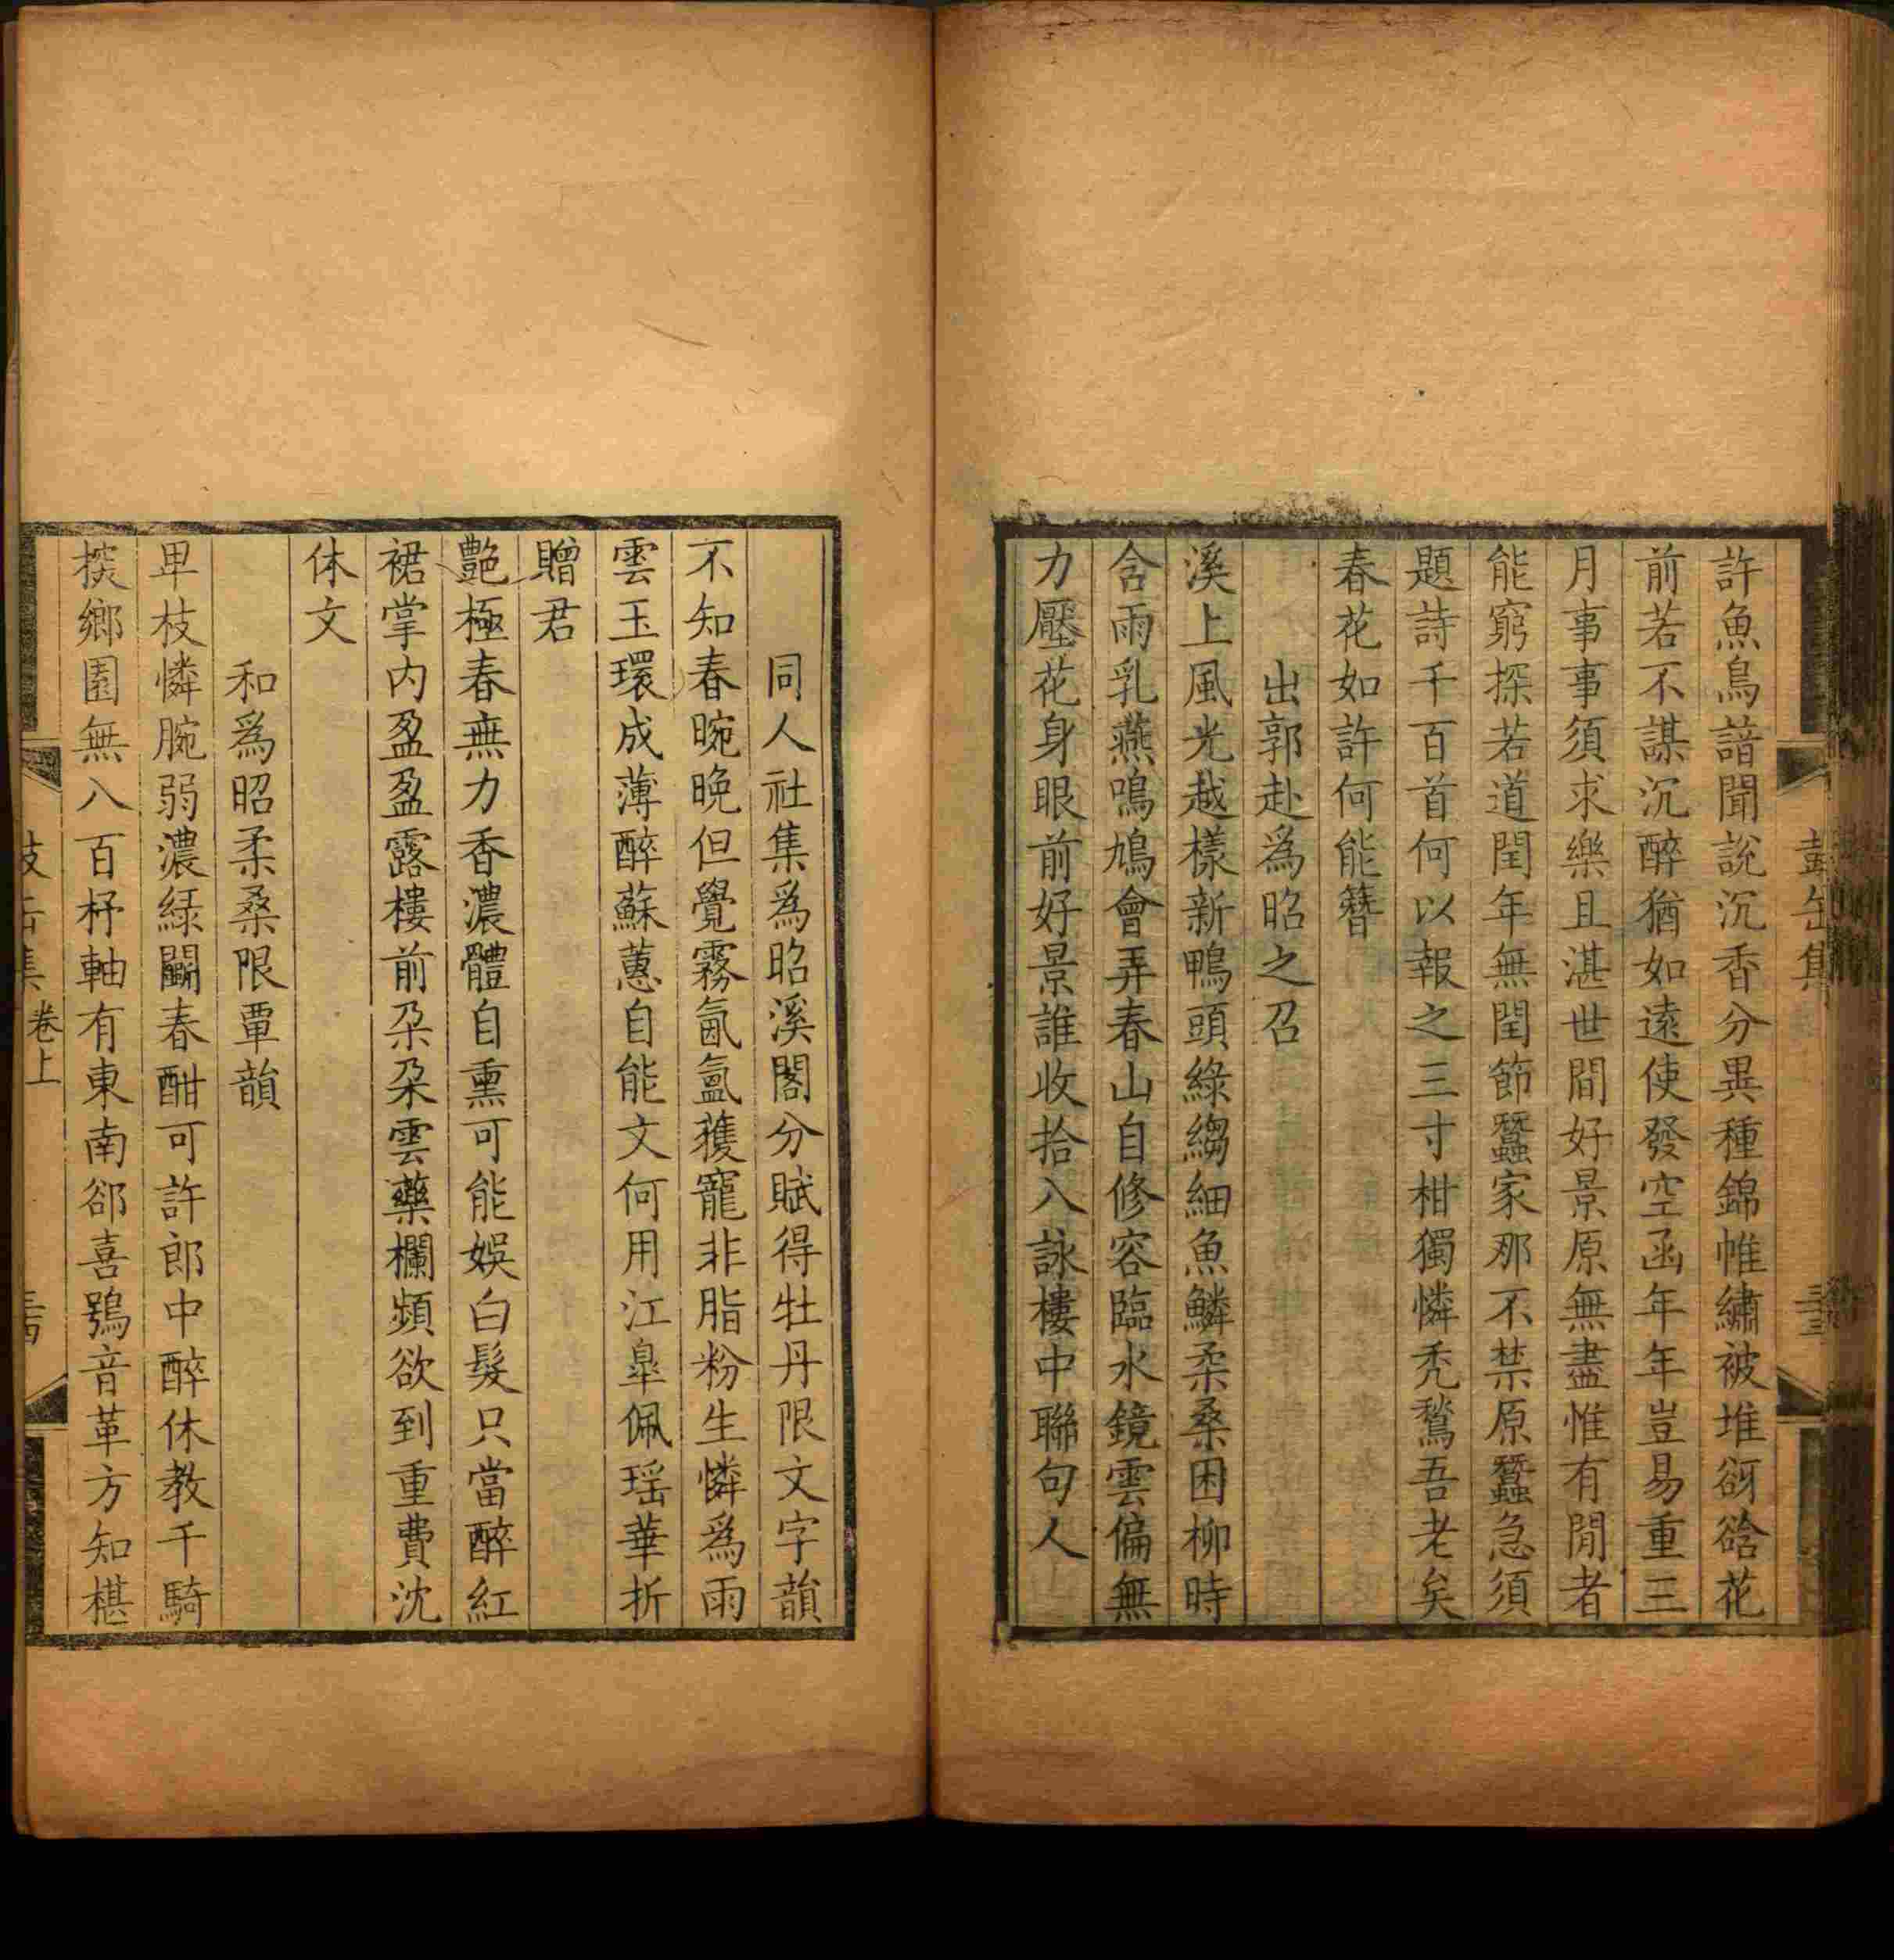 許魚鳥諳聞說沉香分異種錦帷繡被堆谺谽花
前若不謀沉醉猶如遠使發空函年年豈易重三
月事事須求樂且湛世間好景原無盡惟有閒者
能窮探若道閏年無閏節蠶家那不禁原蠶急須
題詩千百首何以報之三寸柑獨憐禿鶖吾老矣
春花如許何能簪
出郭赴爲昭之召
溪上風光越樣新鴨頭綠縐細魚鱗柔桑困柳時
含雨乳燕鳴鳩會弄春山自修容臨水鏡雲偏無
力壓花身眼前好景誰收拾入詠樓中聯句人
同人社集爲昭溪閣分賦得牡丹限文字韻
不知春晼晚但覺霧氤氳獲寵非脂粉生憐爲雨
雲玉環成薄醉蘇蕙自能文何用江臯佩瑶華折
贈君
艷極春無力香濃體自熏可能娛白髮只當醉紅
裙掌内盈盈露樓前朵朵雲藥欄頻欲到重費沈
休文
和爲昭柔桑限覃韻
卑枝憐腕弱濃緑鬬春酣可許郎中醉休教千騎
掞鄉園無八百杼軸有東南郤喜鴞音革方知椹
集卷上